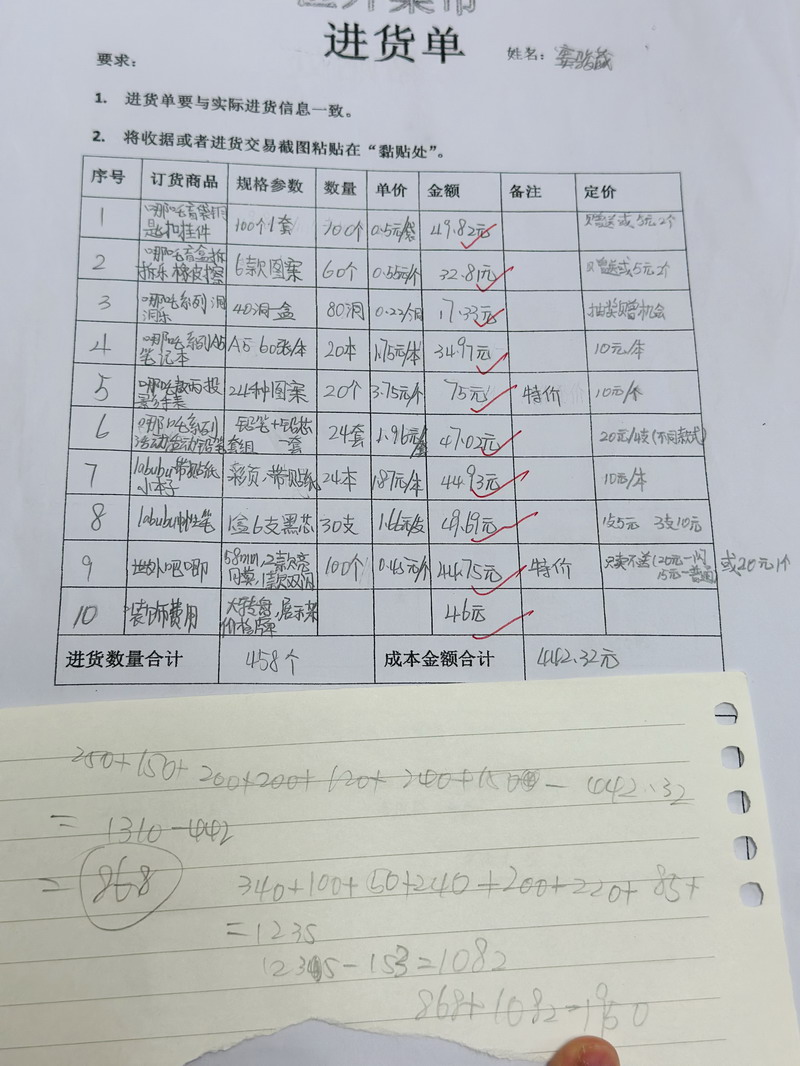 进货单
姓名：
要求：
1. 进货单要与实际进货信息一致。
2. 将收据或者进货交易截图粘贴在“黏贴处”。
序号 订货商品 规格参数 数量 单价 金额 备注 定价
1 哪吒盲袋钥匙扣挂件 100个1套 100个 0.5元/袋 49.82元 赠送或5元2个
2 哪吒盲盒拆拆乐橡皮擦 6款图案 60个 0.55元/个 32.81元 赠送或5元2个
3 哪吒系列洞洞乐 40洞一盒 80洞 0.22/洞 17.33元 抽奖赠机会
4 哪吒系列A5笔记本 A5 60张/本 20本 1.75元/本 34.97元 10元/本
5 哪吒敖丙投影手表 24种图案 20个 3.75元/个 75元 特价 10元/个
6 哪吒系列活动铅笔套组 铅笔+铅芯一套 24套 1.96元/套 47.02元 20元/4支(不同款式)
7 labubu带贴纸小本子 彩页、带贴纸 24本 1.87元/本 44.93元 10元/本
8 labubu中性笔 1盒6支黑芯 30支 1.66元/支 49.69元 1支5元 3支10元
9 吧唧 58mm,2款亮 100个 0.45元/个 44.75元 特价 只卖不送 或20元1个
10 装饰费用 大转盘、展示架价格牌 46元
进货数量合计 458个 成本金额合计 442.32元
250+150+200+200+120+240+150 - 442.32
= 1310-442
= 868
340+100+150+240+200+220+85+
=1235
-153=1082
868+1082=1950